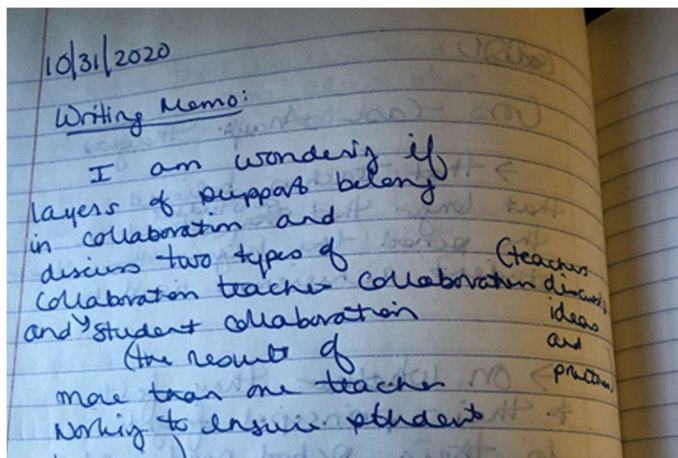 10/31/2020
Writing Memo:
I am wondering if
layers of support belong
in collaboration and
discuss two types of
collaboration teacher collaboration
(teachers
discussing
ideas
and
practices
and student collaboration
(the results of
more than one teacher
working to ensure student